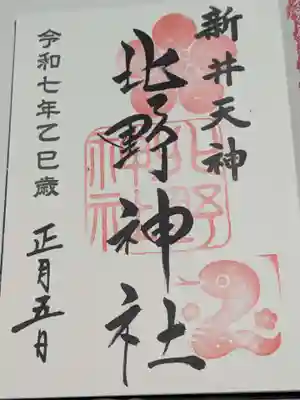 新井天神
北野神社
北野神社
令和七年乙巳歳
正月五日